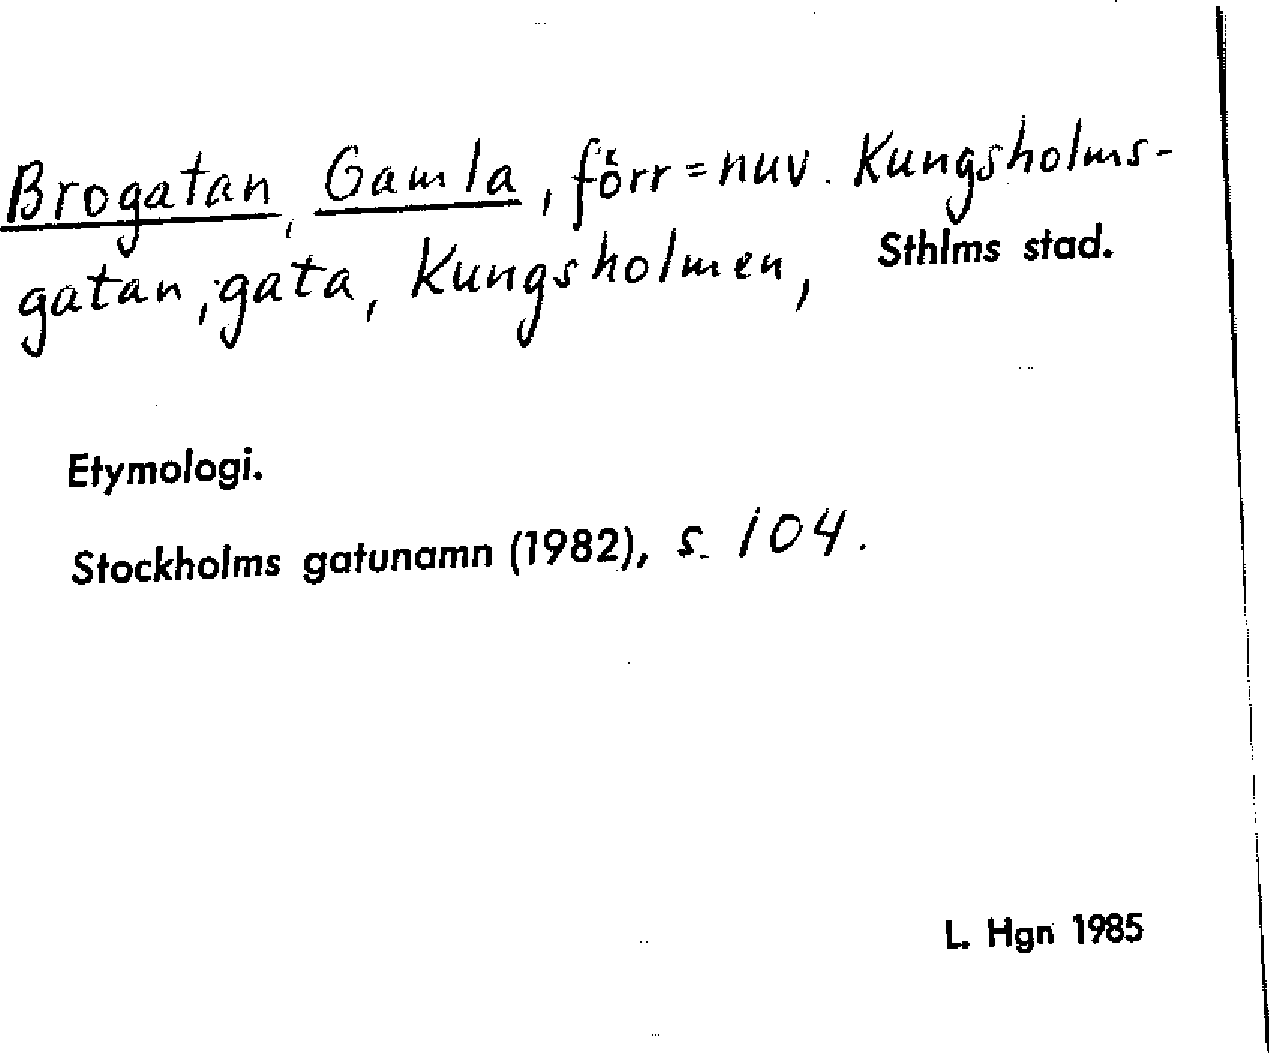 Brogatan, Gamla, förr = nuv. Kungsholms-
gatan, gata, Kungsholmen, Sthlms stad.
Etymologi.
Stockholms gatunamn (1982), s. 104.
L. Hgn 1985